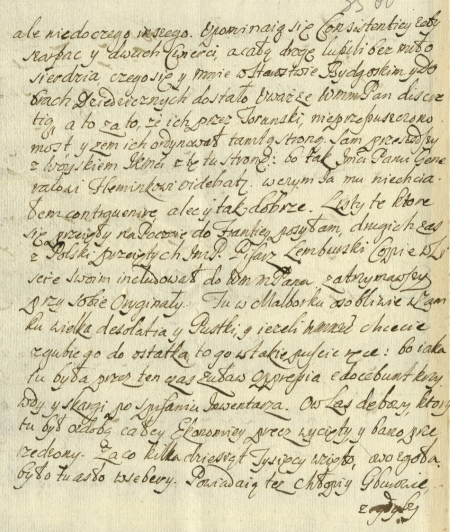 ale niedoczego inszego. Upominaią się Consistentiey żeby
skarbac y dwuch Cwierci, a całą drogę łupili bez miło
sierdzia, czego się y mnie w Starostwie Bydgoskim y do
brach Dziedzicznych dostało. Uważże WmmPan discre
tią, a to za to, że ich przez Toruński, nieprzepuszczono
mozt, y żem ich ordynował tamtą stroną. Sam przeszedszy
z woyskiem tą stroną: bo tak Jmci Panu Gene
rałowi Fleminkowi videbatur, w czym Ja mu niechcia
łem contravenire, ale y tak dobrze. Listy te ktore
się przeięły na Poczcie do Francyi posyłam, drugich zas
z Polski przeiętych ImP. Pisarz Lemburski Copie w Li
scie swoim includował do WmmPana, zatrzymawszy
przy sobie Originały. Tu w Malborku osobliwie w Zam
ku wielka desolatia y Pustki, y ieżeli chcecie
zgubić go do ostatka to go w takie puście ręce: bo iaka
tu była przez ten czas Żuław oppressia docebunt krzy
wdy y skargi po spisaniu Inwentarza. Owlas dębowy, ktory
tu był ozdobą całey Ekonomiey precz wycięty y bano prze
rzedzony. Za co kilka dziesiąt Tysięcy wzięto, owo zgoła
było tu asło w sebery. Powiadaią też chłopi y Gburowie,
z gdyby